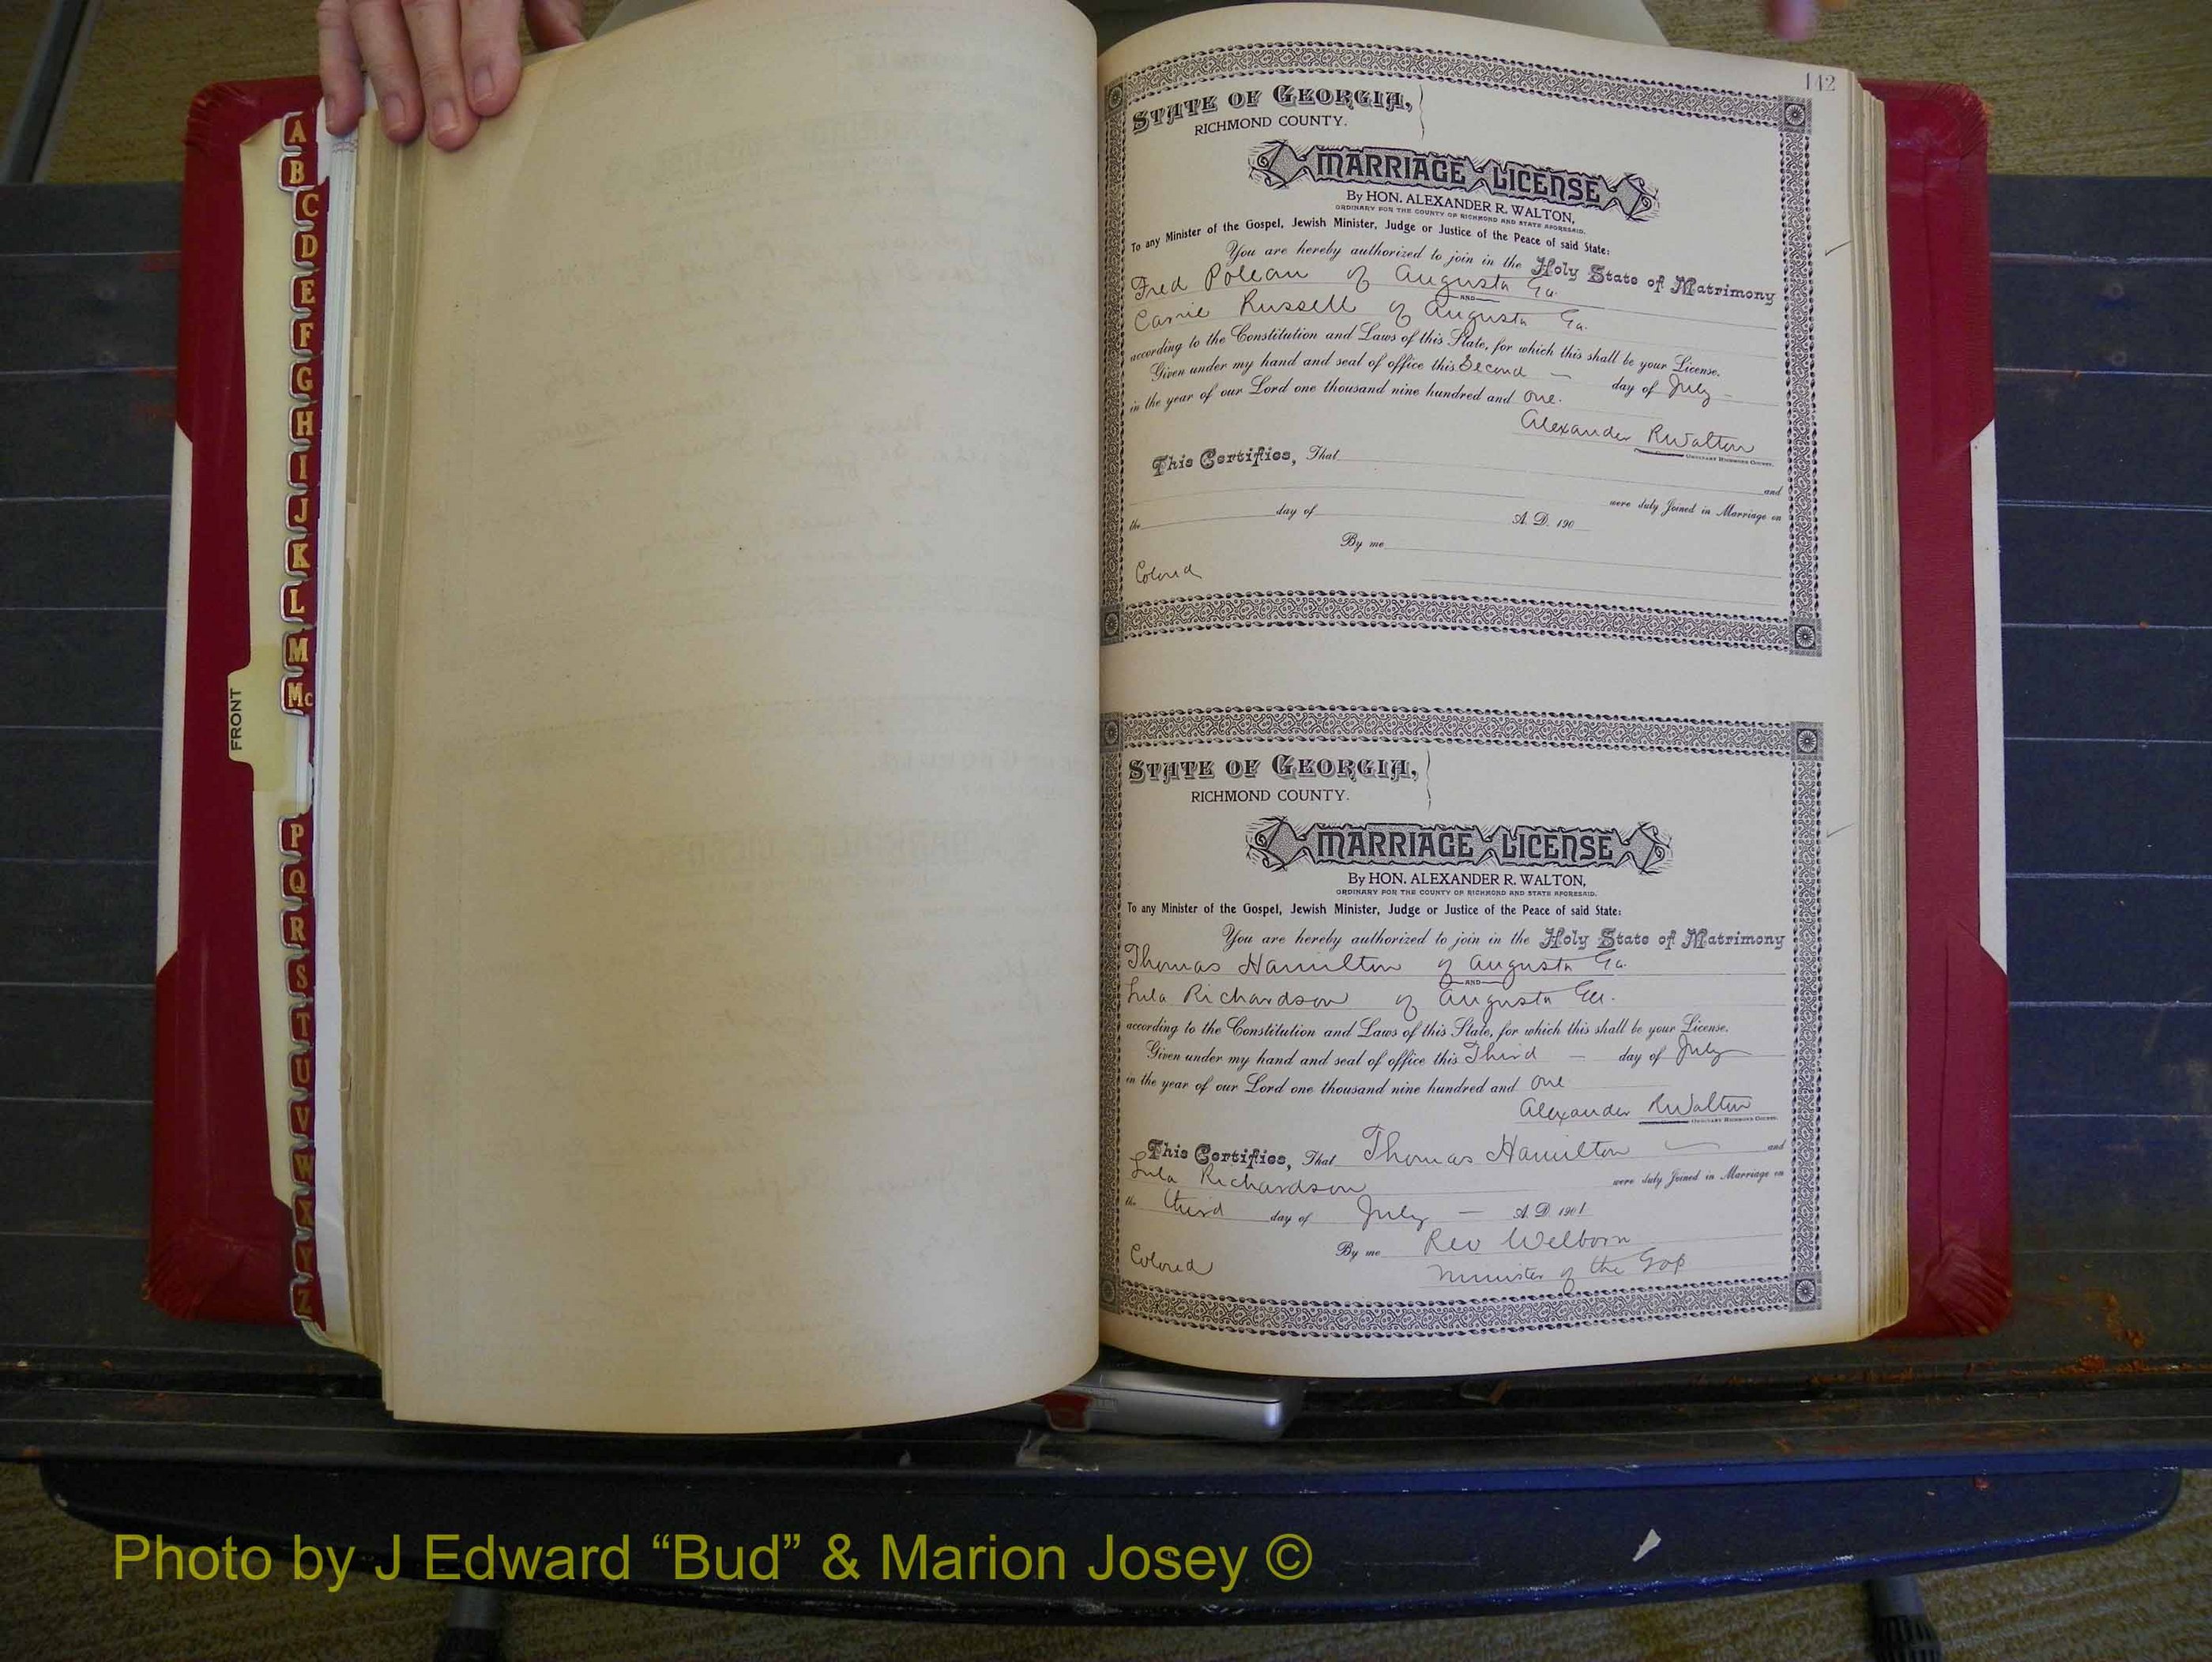 A
B
C
D
E
F
G
H
I
J
K
L
M
Mc
FRONT
P
Q
R
S
T
U
V
W
X
Y
Z
142
STATE OF GEORGIA,
RICHMOND COUNTY.
MARRIAGE LICENSE
By HON. ALEXANDER R. WALTON,
ORDINARY FOR THE COUNTY OF RICHMOND AND STATE AFORESAID.
To any Minister of the Gospel, Jewish Minister, Judge or Justice of the Peace of said State:
You are hereby authorized to join in the Holy State of Matrimony
Fred Polean of Augusta Ga
AND
Carrie Russell of Augusta Ga.
according to the Constitution and Laws of this State, for which this shall be your License.
Given under my hand and seal of office this Second — day of July -
in the year of our Lord one thousand nine hundred and one.
Alexander R Walton
ORDINARY RICHMOND COUNTY.
This Certifies, That
and
were duly Joined in Marriage on
the day of A. D. 190
By me
Colored
STATE OF GEORGIA,
RICHMOND COUNTY.
MARRIAGE LICENSE
By HON. ALEXANDER R. WALTON,
ORDINARY FOR THE COUNTY OF RICHMOND AND STATE AFORESAID.
To any Minister of the Gospel, Jewish Minister, Judge or Justice of the Peace of said State:
You are hereby authorized to join in the Holy State of Matrimony
Thomas Hamilton of Augusta Ga.
AND
Lula Richardson of Augusta Ga.
according to the Constitution and Laws of this State, for which this shall be your License.
Given under my hand and seal of office this Third — day of July
in the year of our Lord one thousand nine hundred and one
Alexander R Walton
ORDINARY RICHMOND COUNTY.
This Certifies, That Thomas Hamilton and
Lula Richardson were duly Joined in Marriage on
the third day of July — A. D. 1901
By me Rev Welborn
Colored Minister of the Gop
Photo by J Edward “Bud” & Marion Josey ©